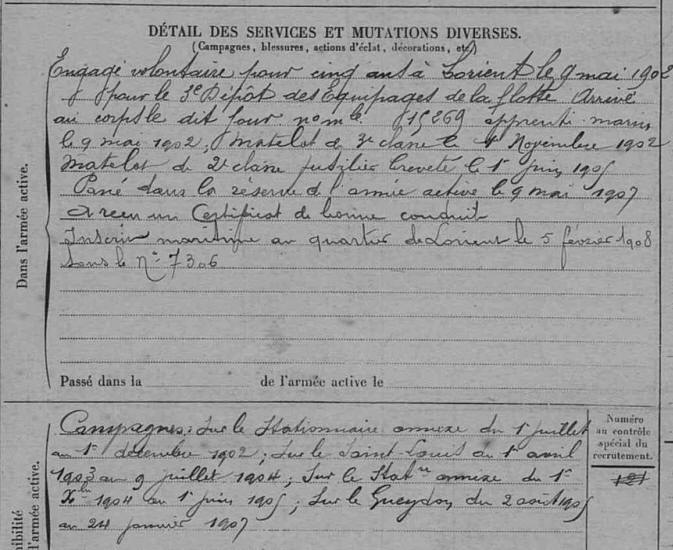 DÉTAIL DES SERVICES ET MUTATIONS DIVERSES.
(Campagnes, blessures, actions d'éclat, décorations, etc.)
Engagé volontaire pour cinq ans à Lorient le 9 mai 1902
pour le 3e Dépôt des Équipages de la flotte Arrivé
au corps le dit jour nº mle 15269 apprenti-marin
le 9 mai 1902; Matelot de 3e classe le 1er Novembre 1902
Matelot de 2e classe fusilier breveté le 1er juin 1905
Passé dans la réserve de l'armée active le 9 mai 1907
A reçu un Certificat de bonne conduite
Inscrit maritime au quartier de Lorient le 5 février 1908
sous le Nº 7306
Dans l'armée active.
Passé dans la de l'armée active le
Campagnes: Sur le Stationnaire annexe du 1er juillet
au 1er décembre 1902; Sur le Saint-Louis du 1er avril
1903 au 9 juillet 1904; Sur le Statre annexe du 1er
Xbre 1904 au 1er juin 1905; Sur le Gueydon du 2 août 1905
au 24 janvier 1907
Numéro
au contrôle
spécial du
recrutement.
121
nibilité
l'armée active.